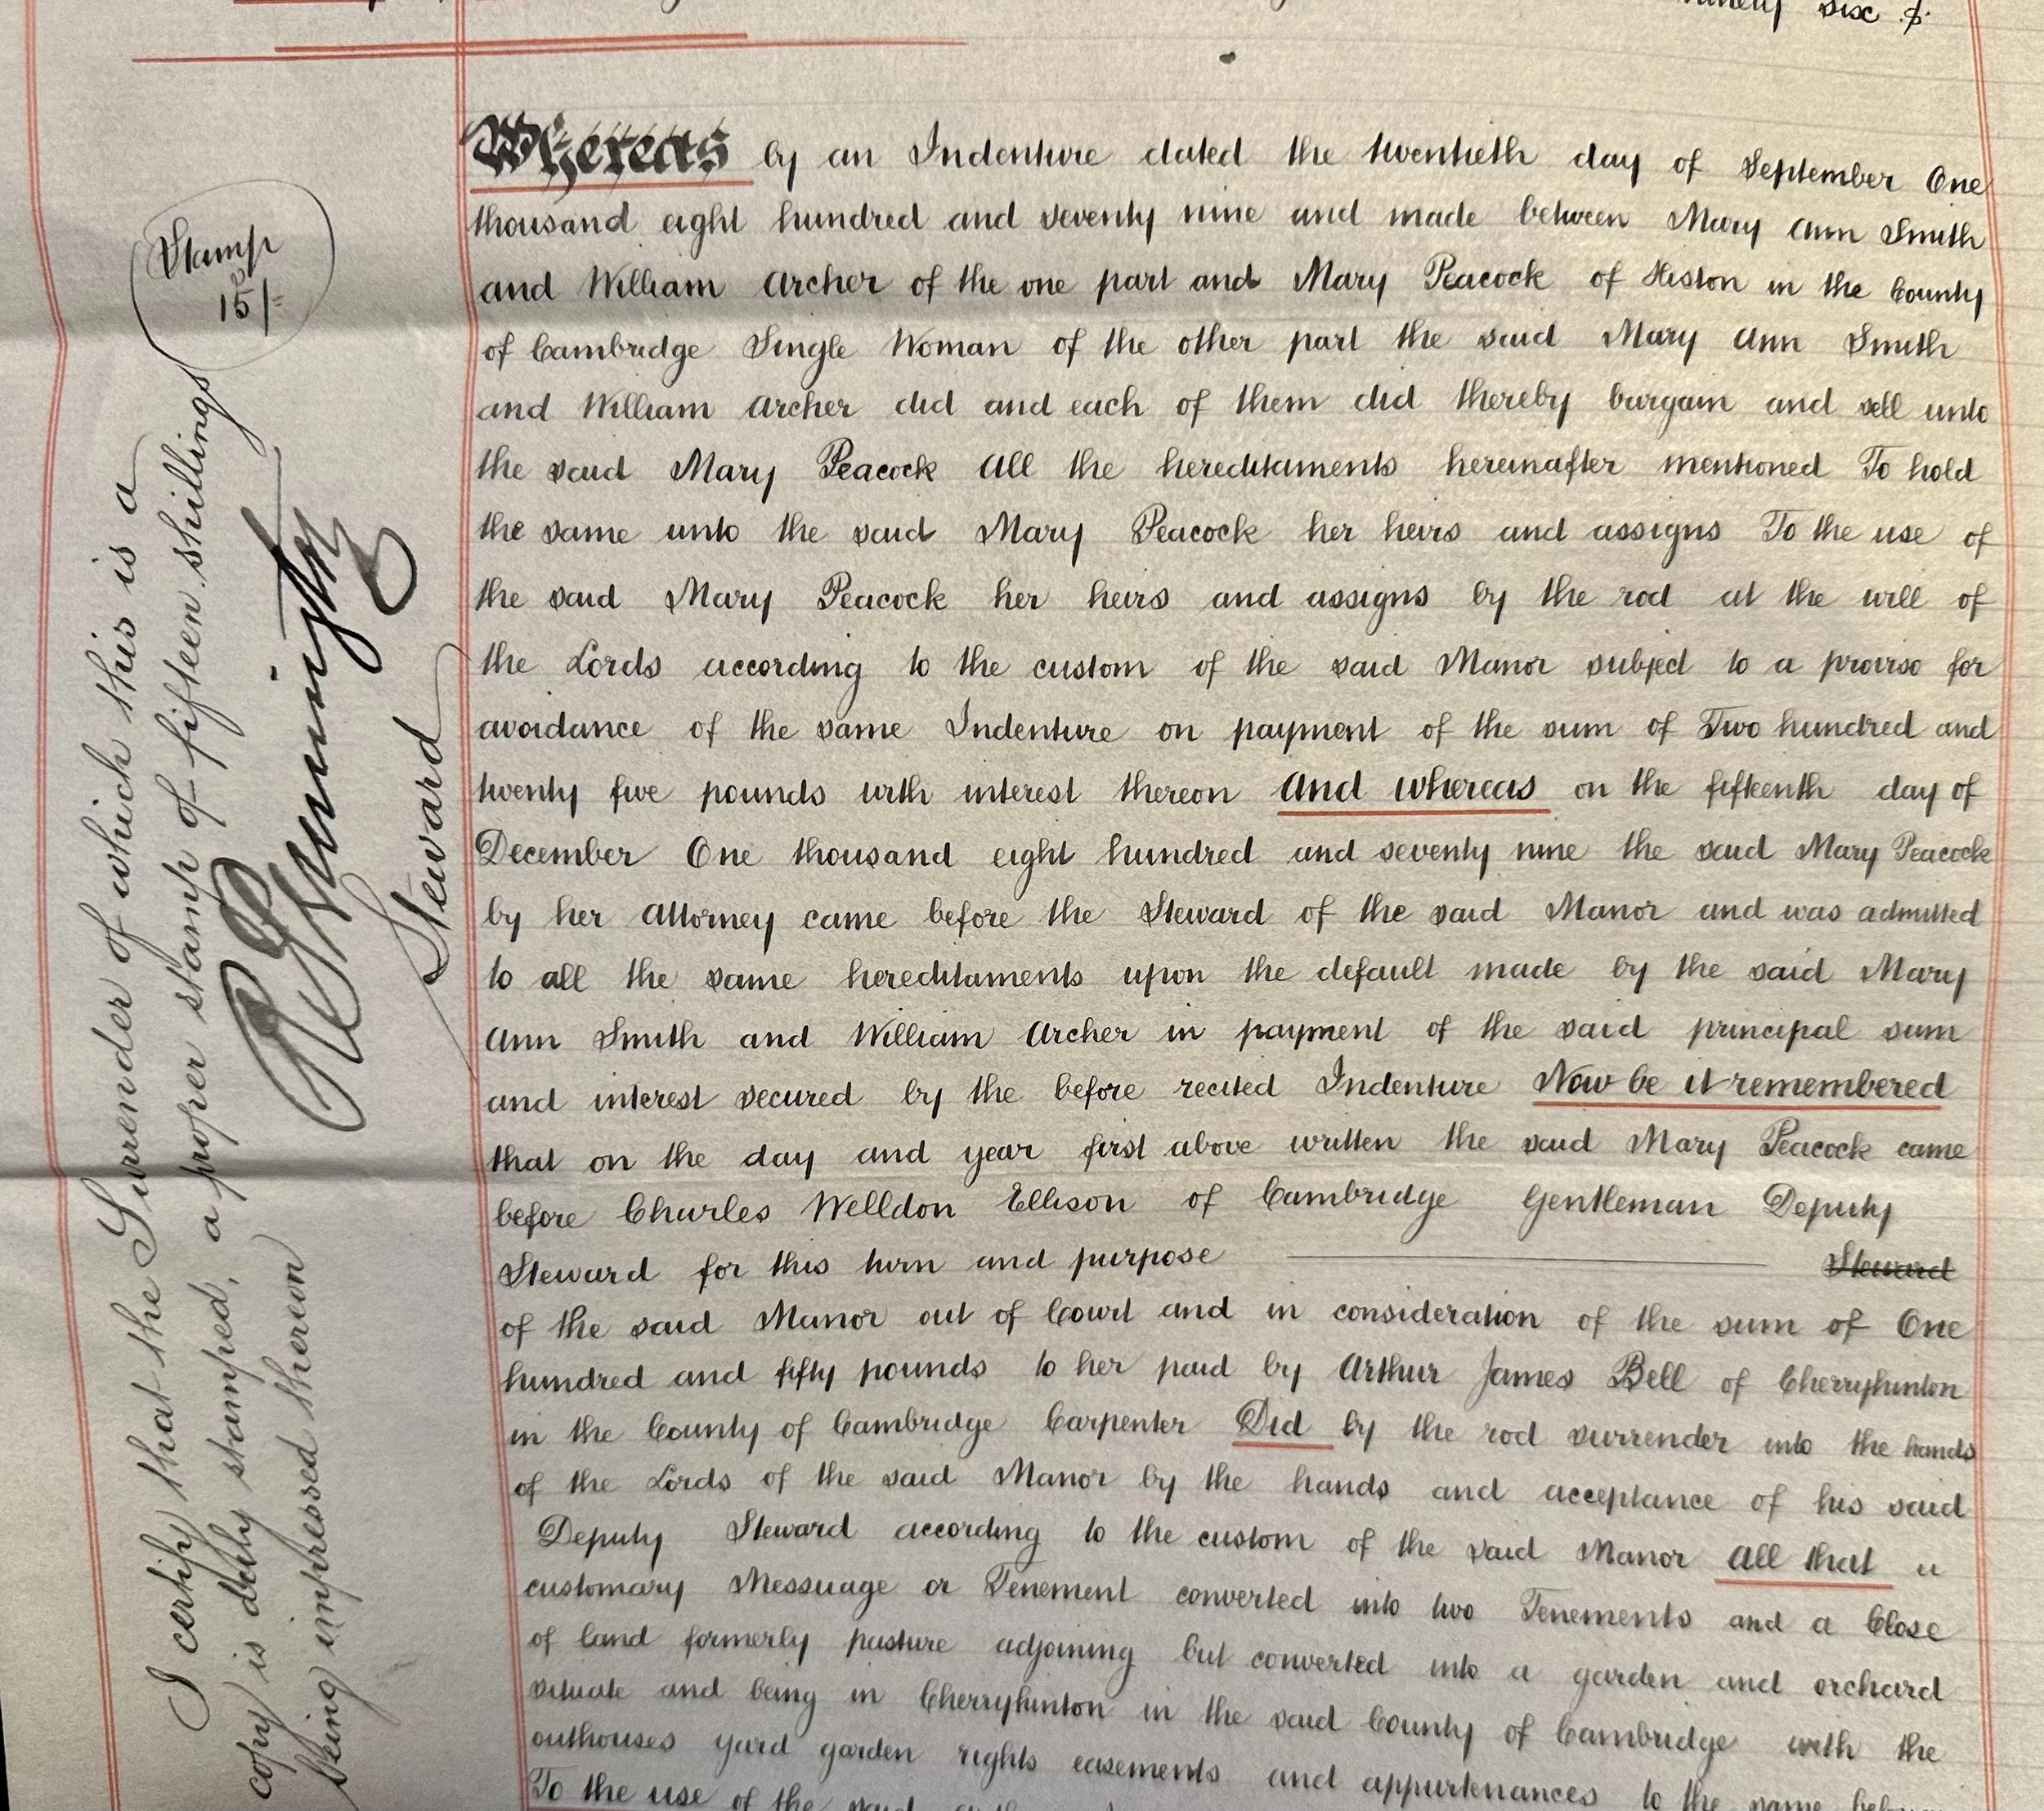 ninety six
Whereas by an Indenture dated the twentieth day of September One
thousand eight hundred and seventy nine and made between Mary Ann Smith
and William Archer of the one part and Mary Peacock of Histon in the County
of Cambridge Single Woman of the other part the said Mary Ann Smith
and William Archer did and each of them did thereby bargain and sell unto
the said Mary Peacock All the hereditaments hereinafter mentioned To hold
the same unto the said Mary Peacock her heirs and assigns To the use of
the said Mary Peacock her heirs and assigns by the rod at the will of
the Lords according to the custom of the said Manor subject to a proviso for
avoidance of the same Indenture on payment of the sum of Two hundred and
twenty five pounds with interest thereon And whereas on the fifteenth day of
December One thousand eight hundred and seventy nine the said Mary Peacock
by her Attorney came before the Steward of the said Manor and was admitted
to all the same hereditaments upon the default made by the said Mary
Ann Smith and William Archer in payment of the said principal sum
and interest secured by the before recited Indenture Now be it remembered
that on the day and year first above written the said Mary Peacock came
before Charles Welldon Ellison of Cambridge Gentleman Deputy
Steward for this turn and purpose Steward
of the said Manor out of Court and in consideration of the sum of One
hundred and fifty pounds to her paid by Arthur James Bell of Cherryhinton
in the County of Cambridge Carpenter Did by the rod surrender into the hands
of the Lords of the said Manor by the hands and acceptance of his said
Deputy Steward according to the custom of the said Manor All that a
customary Messuage or Tenement converted into two Tenements and a Close
of land formerly pasture adjoining but converted into a garden and orchard
situate and being in Cherryhinton in the said County of Cambridge with the
outhouses yard garden rights easements and appurtenances to the same
To the use of the said
Stamp
15/-
I certify that the Surrender of which this is a
copy is duly stamped, a proper stamp of fifteen shillings
being impressed thereon
Steward